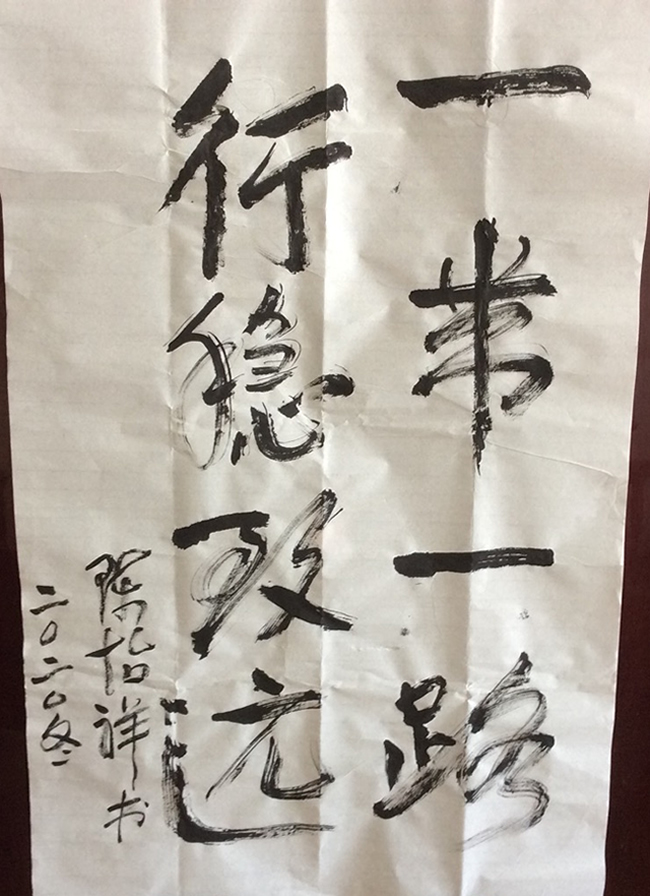 一带一路
行稳致远
陈怡祥书
二〇二〇冬